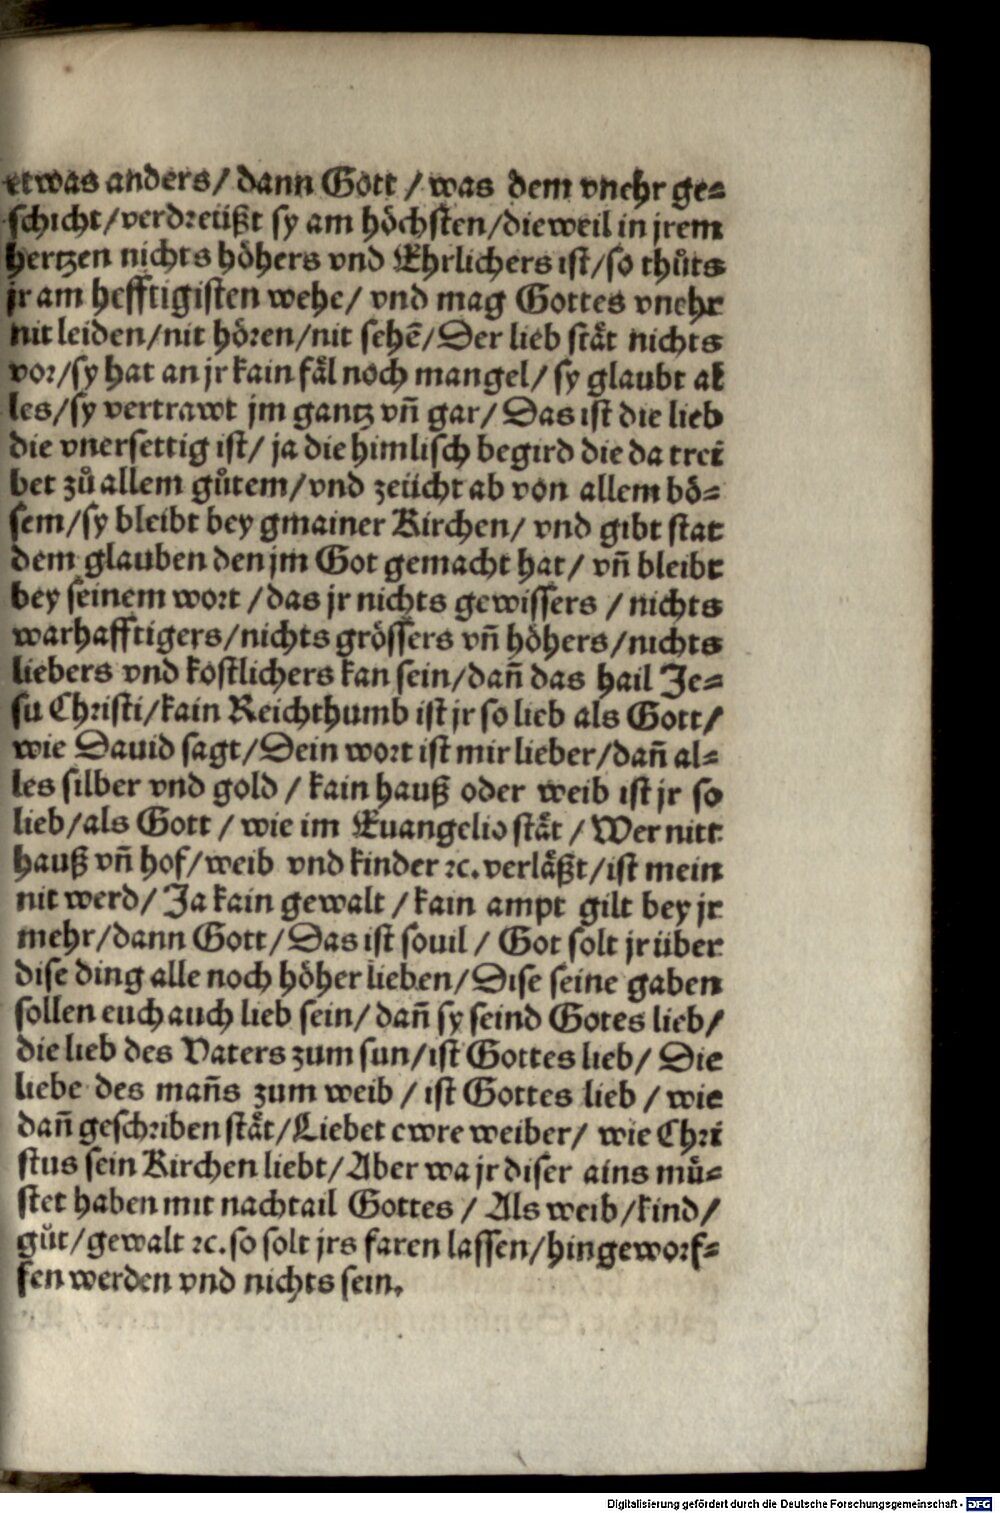 etwas anders/ dann Gott / was dem vnehr ge⸗
schicht/verdreüßt sy am höchsten/dieweil in jrem
hertzen nichts höhers vnd Ehrlichers ist/so thůts
jr am hefftigisten wehe/ vnd mag Gottes vnehr
nit leiden/nit hören/nit sehē/Der lieb stät nichts
vor/sy hat an jr kain fäl noch mangel/ sy glaubt al
les/sy vertrawt jm gantz vn̄ gar/ Das ist die lieb
die vnersettig ist/ ja die himlisch begird die da trei
bet zů allem gůtem/vnd zeücht ab von allem bö⸗
sem/sy bleibt bey gmainer Kirchen/ vnd gibt stat
dem glauben den jm Got gemacht hat/ vn̄ bleibt
bey seinem wort /das jr nichts gewissers / nichts
warhafftigers/nichts grössers vn̄ höhers/nichts
liebers vnd kostlichers kan sein/dan̄ das hail Je⸗
su Christi/kain Reichthumb ist jr so lieb als Gott/
wie Dauid sagt/Dein wort ist mir lieber/dan̄ al⸗
les silber vnd gold / kain hauß oder weib ist jr so
lieb/als Gott / wie im Euangelio stät / Wer nitt
hauß vn̄ hof/weib vnd kinder ꝛc. verläßt/ist mein
nit werd/ Ja kain gewalt /kain ampt gilt bey jr
mehr/dann Gott/Das ist souil / Got solt jr über
dise ding alle noch höher lieben/Dise seine gaben
sollen euch auch lieb sein/ dan̄ sy seind Gotes lieb/
die lieb des Vaters zum sun/ist Gottes lieb/ Die
liebe des man̄s zum weib / ist Gottes lieb / wie
dan̄ geschriben stät/Liebet ewre weiber/ wie Chri
stus sein Kirchen liebt/Aber wa jr diser ains mů⸗
stet haben mit nachtail Gottes / Als weib/kind/
gůt/gewalt ꝛc. so solt jrs faren lassen/hingeworf⸗
fen werden vnd nichts sein.
Digitalisierung gefördert durch die Deutsche Forschungsgemeinschaft - DFG